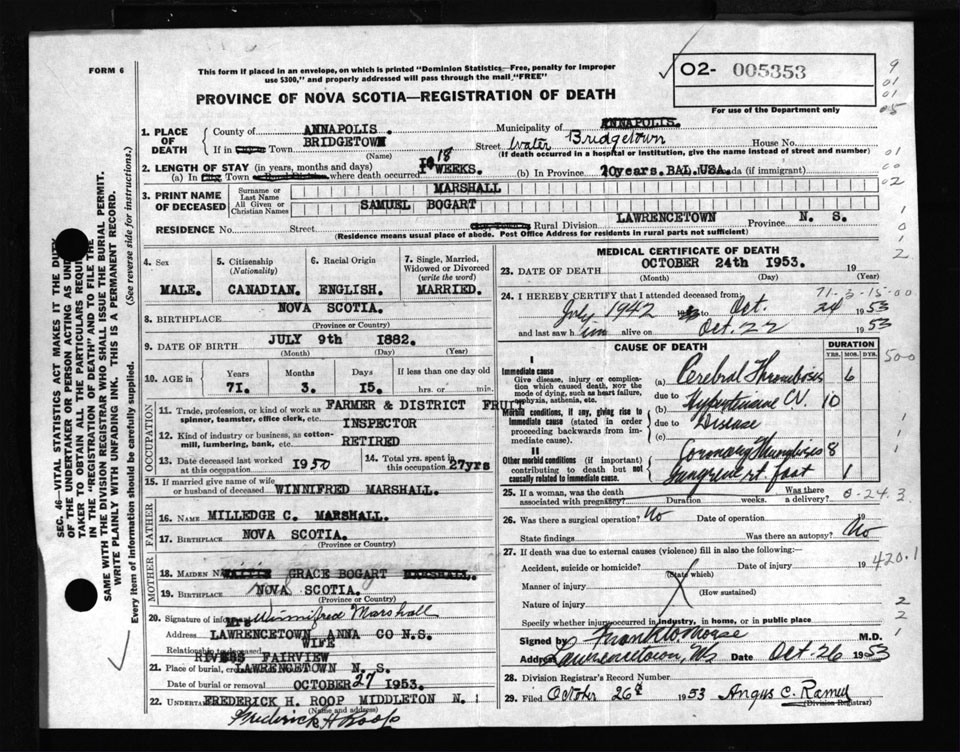 FORM 6
This form if placed in an envelope, on which is printed "Dominion Statistics—Free, penalty for improper
use $300," and properly addressed will pass through the mail "FREE"
O2- 005353
For use of the Department only
9
01
01
05
PROVINCE OF NOVA SCOTIA—REGISTRATION OF DEATH
1. PLACE OF DEATH
County of ANNAPOLIS. Municipality of ANNAPOLIS.
If in Town BRIDGETOWN (Name) Street Water Bridgetown House No.
(If death occurred in a hospital or institution, give the name instead of street and number)
01
00
02
2. LENGTH OF STAY (in years, months and days)
(a) In Town where death occurred 18 WEEKS. (b) In Province 70years. BAL.USA. (if immigrant)
3. PRINT NAME OF DECEASED
Surname or Last Name MARSHALL
All Given or Christian Names SAMUEL BOGART
RESIDENCE No. Street Rural Division LAWRENCETOWN Province N. S.
(Residence means usual place of abode. Post Office Address for residents in rural parts not sufficient)
1
0
1
2
SEC. 46—VITAL STATISTICS ACT MAKES IT THE DUTY
OF THE UNDERTAKER OR PERSON ACTING AS UNDER-
TAKER TO OBTAIN ALL THE PARTICULARS REQUIRED
IN THE "REGISTRATION OF DEATH" AND TO FILE THE
SAME WITH THE DIVISION REGISTRAR WHO SHALL ISSUE THE BURIAL PERMIT.
WRITE PLAINLY WITH UNFADING INK. THIS IS A PERMANENT RECORD.
Every item of information should be carefully supplied. (See reverse side for instructions.)
4. Sex MALE.
5. Citizenship (Nationality) CANADIAN.
6. Racial Origin ENGLISH.
7. Single, Married, Widowed or Divorced (write the word) MARRIED.
8. BIRTHPLACE NOVA SCOTIA.
(Province or Country)
9. DATE OF BIRTH JULY 9th 1882.
(Month) (Day) (Year)
10. AGE in Years 71. Months 3. Days 15. If less than one day old hrs. or min.
OCCUPATION
11. Trade, profession, or kind of work as spinner, teamster, office clerk, etc. FARMER & DISTRICT FRUIT
INSPECTOR
12. Kind of industry or business, as cotton-mill, lumbering, bank, etc. RETIRED
13. Date deceased last worked at this occupation 1950
14. Total yrs. spent in this occupation 27yrs
15. If married give name of wife or husband of deceased WINNIFRED MARSHALL.
FATHER
16. NAME MILLEDGE C. MARSHALL.
17. BIRTHPLACE NOVA SCOTIA.
(Province or Country)
MOTHER
18. MAIDEN GRACE BOGART MARSHALL.
19. BIRTHPLACE NOVA SCOTIA.
(Province or Country)
20. Signature of informant Mrs Winnifred Marshall
Address LAWRENCETOWN ANNA CO N.S.
Relationship to deceased WIFE
FAIRVIEW
21. Place of burial, LAWRENCETOWN N. S.
Date of burial or removal OCTOBER 27 1953.
22. UNDERTAKER FREDERICK H. ROOP MIDDLETON N.
(Name and address)
Frederick H Roop
MEDICAL CERTIFICATE OF DEATH
23. DATE OF DEATH OCTOBER 24th 1953. 19
(Month) (Day) (Year)
24. I HEREBY CERTIFY that I attended deceased from: 71-3-15-00
July 1942 to Oct. 24 1953
and last saw him alive on Oct. 22 1953
CAUSE OF DEATH
DURATION
YRS. MOS. DYS.
500
I
Immediate cause
Give disease, injury or complication which caused death, not the mode of dying, such as heart failure, asphyxia, asthenia, etc.
(a) Cerebral Thrombosis 6
due to
Morbid conditions, if any, giving rise to immediate cause (stated in order proceeding backwards from immediate cause).
(b) Hypertensive C.V. 10
due to Disease
(c)
II
Other morbid conditions (if important) contributing to death but not causally related to immediate cause.
Coronary Thrombosis 8
Gangrene rt. foot 1
1
1
25. If a woman, was the death associated with pregnancy? Duration weeks. Was there a delivery? 0-24.3
26. Was there a surgical operation? No Date of operation 19
State findings Was there an autopsy? No
27. If death was due to external causes (violence) fill in also the following:—
Accident, suicide or homicide? (State which) Date of injury 19
420.1
Manner of injury (How sustained)
Nature of injury
Specify whether injury occurred in industry, in home, or in public place
2
2
1
Signed by Frank W Morse M.D.
Address Lawrencetown, NS Date Oct. 26 1953
28. Division Registrar's Record Number
29. Filed October 26th 1953 Angus C. Ramey
(Division Registrar)